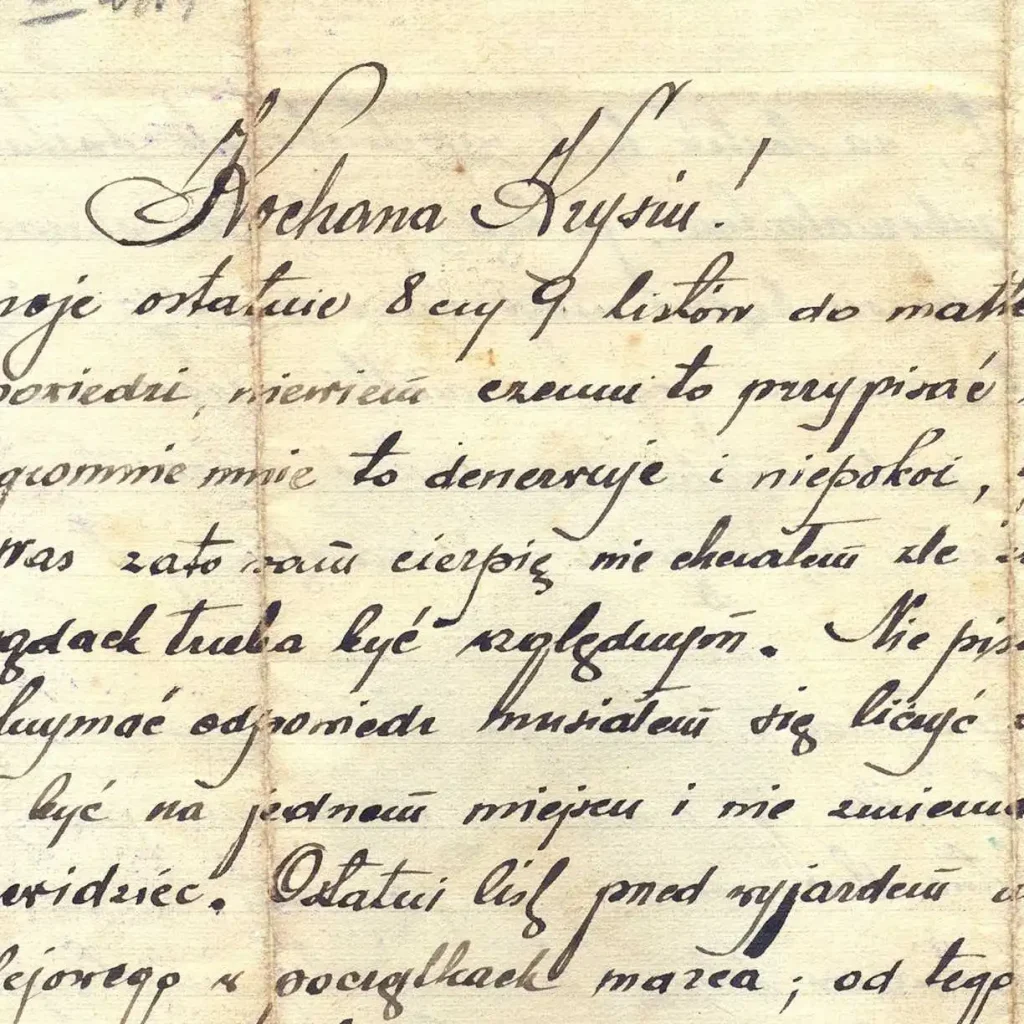 Kochana Krysiu!
moje ostatnie 8 czy 9 listów do matk
powiedzi, niewiem czemu to przypisać
gromnie mnie to denerwuje i niepokoi,
Was zato sam cierpię nie chciałem źle
ądach trzeba być względnym. Nie pis
trzymać odpowiedź musiałem się liczyć
być na jednem miejscu i nie zmienia
ewidzieć. Ostatni list przed wyjazdem
lejowego w początkach marca; od tego